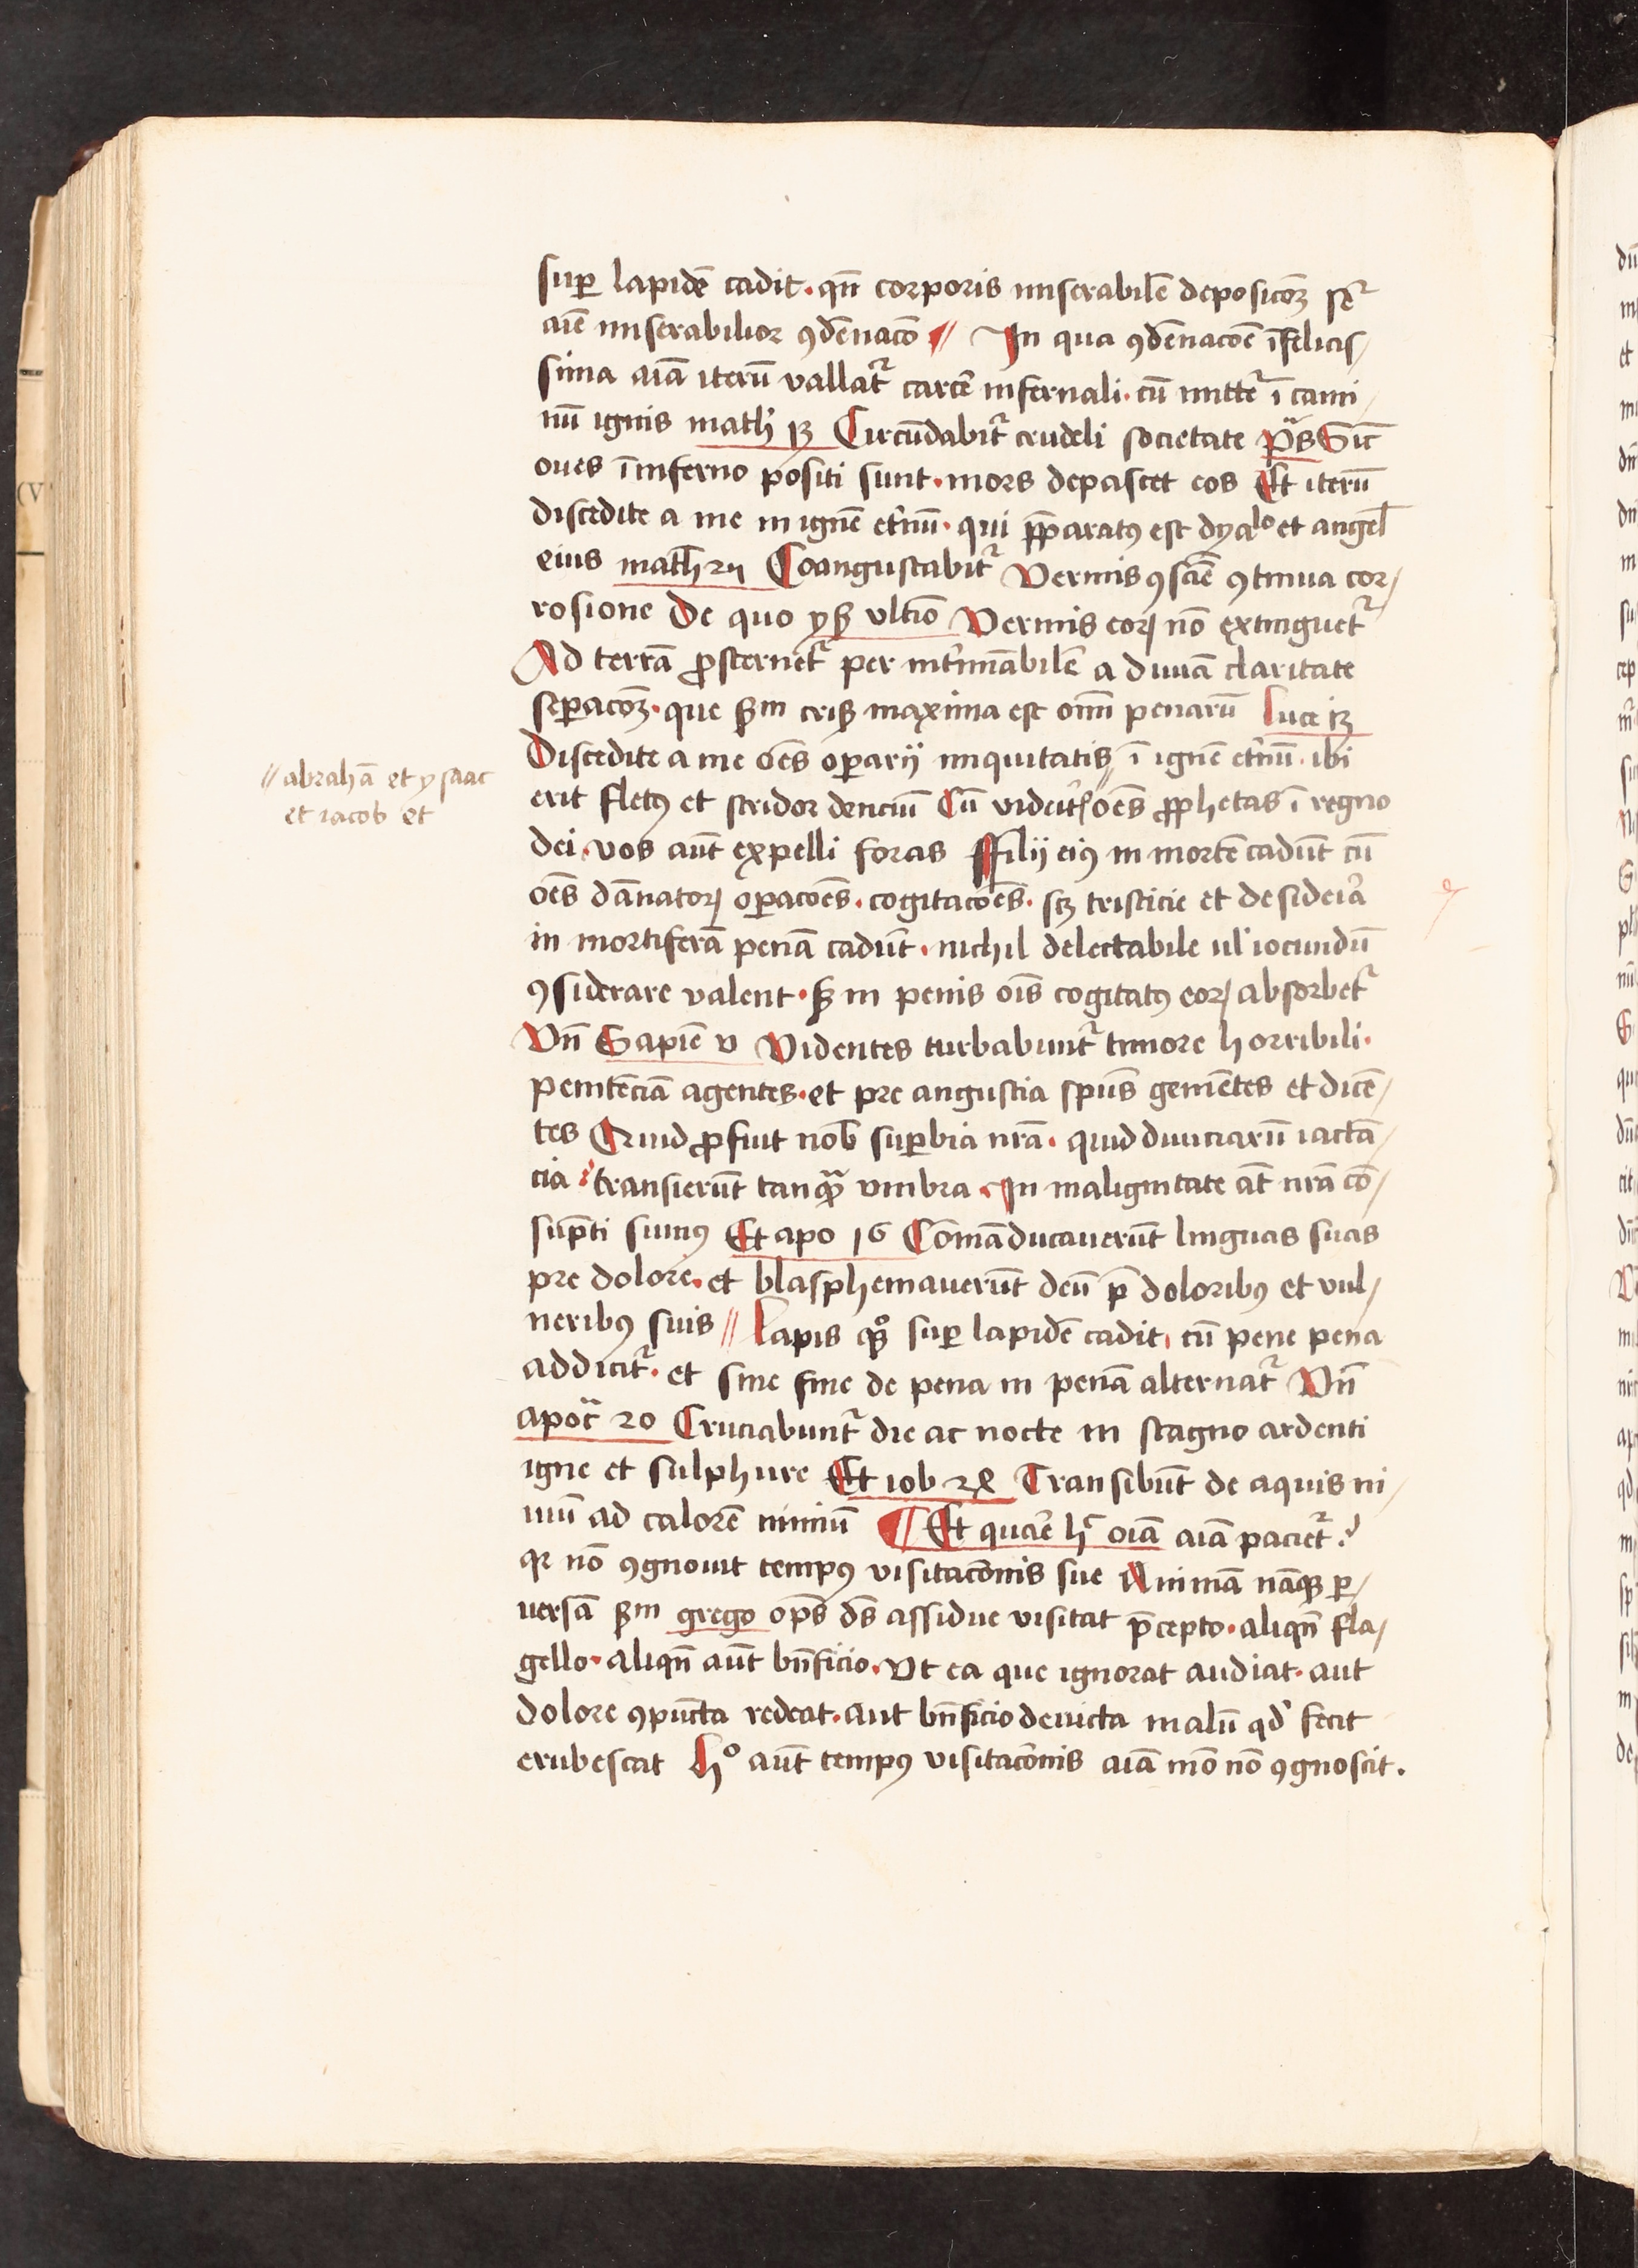 sup lapidē cadit · qn̄ corporis miserabilē deposicōꝫ seꝗr᷑
aīe miserabilior ꝯdēnacō // In qua ꝯdēnacōe īfelicis/
sima aīa iterū vallat᷑ carcē infernali · cū mittet᷑ ī cami/
nū ignis math 13 Circūdabit᷑ crudeli societate pˢ̄ Sic̄
oues ī inferno positi sunt · mors depascet eos Et iterū
discedite a me in ignē et̓nū · qui p̄paratꝰ est dyalo et angel̄
eius math̄ 25 Coangustabit᷑ Vermis ꝯsciē ꝯtinua cor/
rosione De quo ysa vltīo Vermis eoꝝ nō extinguet᷑
Ad terrā ꝓsternet᷑ per int̓minabilē a diuīa claritate
sepacōꝫ · que scd̄m cris̄ maxima est oīm penarū Luce 13
Discedite a me oēs oparij iniquitatis ī ignē et̓nū · ibi
// abrahā et ysaac
et iacob et
erit fletꝰ et stridor denciū Cū videit̓s // oēs ꝓphetas ī regno
dei · vos aūt expelli foras ffilij eiꝰ in mortē cadūt cū
oēs dānatoꝝ opacōēs · cogitacōēs · scꝫ tristicie et desideīa
in mortiferā penā cadūt · nichil delectabile ul̓ iocundū
ꝯsiderare valent · sꝫ in penis oīs cogitatꝰ eoꝝ absorbet᷑
Vn̄ Sapiē v Videntes turbabunt᷑ timore horribili ·
penitēciā agentes · et pre angustia spūs gemētes et dicē/
tes Quid ꝓfuit nob̄ supbia nr̄a · quid diuiciarū iactā/
cia · transierūt tanꝗ̄ vmbra · In malignitate aūt nr̄a cō/
sūpti sumꝰ Et apo 16 Comāducauerūt linguas suas
pre dolore · et blasphemauerūt deū p̄ doloribꝰ et vul/
neribꝰ suis // Lapis ꝗͦ sup lapidē cadit · cū pene pena
addicit᷑ · et sine fine de pena in penā alternat᷑ Vn̄
apoc̄ 20 Cruciabunt᷑ die ac nocte in stagno ardenti
igne et sulphure Et iob 24 Transibūt de aquis ni/
uiū ad calorē nimiū ¶ Et quaē hͨ oīa aīa paciet᷑ ?
qꝛ nō ꝯgnouit tempꝰ visitacōnis sue Animā nāqꝫ p/
uersā scd̄m grego op̄s ds̄ assidue visitat p̄cepto · aliqn̄ fla/
gello · aliqn̄ aūt bn̄ficio · Vt ea que ignorat audiat · aut
dolore ꝯpūcta redeat · aut bn̄ficio deuicta malū qd̓ fecit
erubescat hͦ aūt tempꝰ visitacōnis aīa mō nō ꝯgnoscit .